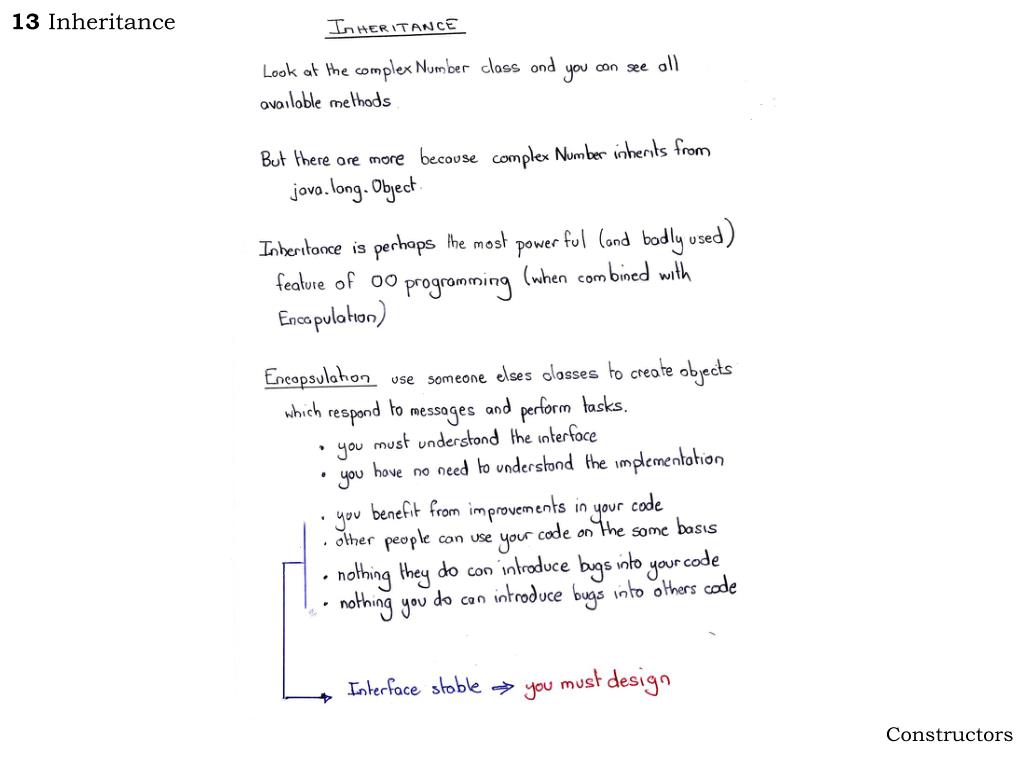 13 Inheritance
INHERITANCE
Look at the complexNumber class and you can see all
available methods.
But there are more because complexNumber inherits from
java.lang.Object.
Inheritance is perhaps the most powerful (and badly used)
feature of OO programming (when combined with
Encapulation)
Encapsulation use someone elses classes to create objects
which respond to messages and perform tasks.
• you must understand the interface
• you have no need to understand the implementation
• you benefit from improvements in your code
• other people can use your code on the same basis
• nothing they do can introduce bugs into your code
• nothing you do can introduce bugs into others code
Interface stable ⇒ you must design
Constructors